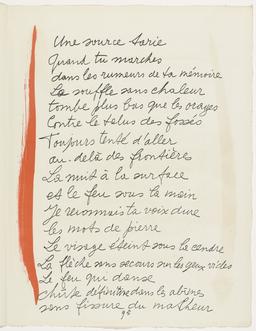 Une source tarie
Quand tu marches
dans les rumeurs de ta mémoire
Le souffle sans chaleur
tombe plus bas que les orages
Contre le talus des fossés
Toujours tenté d'aller
au-delà des frontières
La nuit à la surface
et le feu sous la main
Je reconnais ta voix dure
les mots de pierre
Le visage éteint sous la cendre
La flèche sans secours sur les yeux vides
Le feu qui danse
chute définitive dans les abîmes
sans fissure du malheur